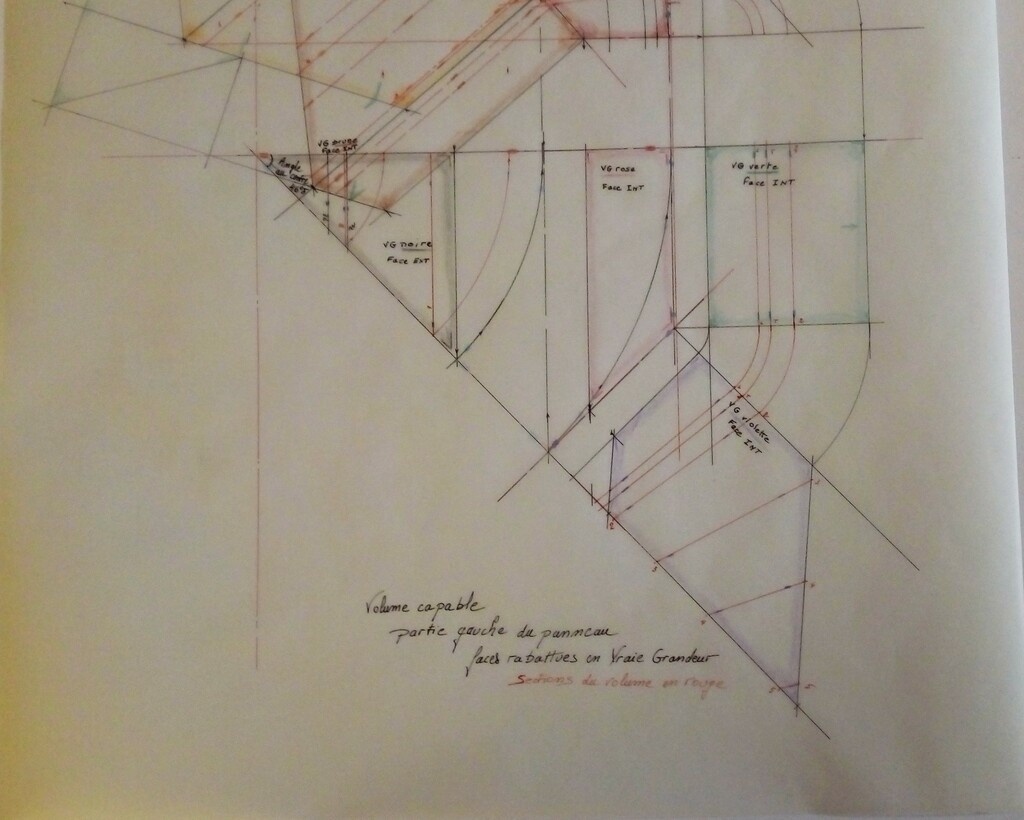 VG brune
Face INT
Angle
VG noire
Face EXT
VG rose
Face INT
VG verte
Face INT
VG violette
Face INT
Volume capable
partie gauche du panneau
faces rabattues en Vraie Grandeur
Sections du volume en rouge